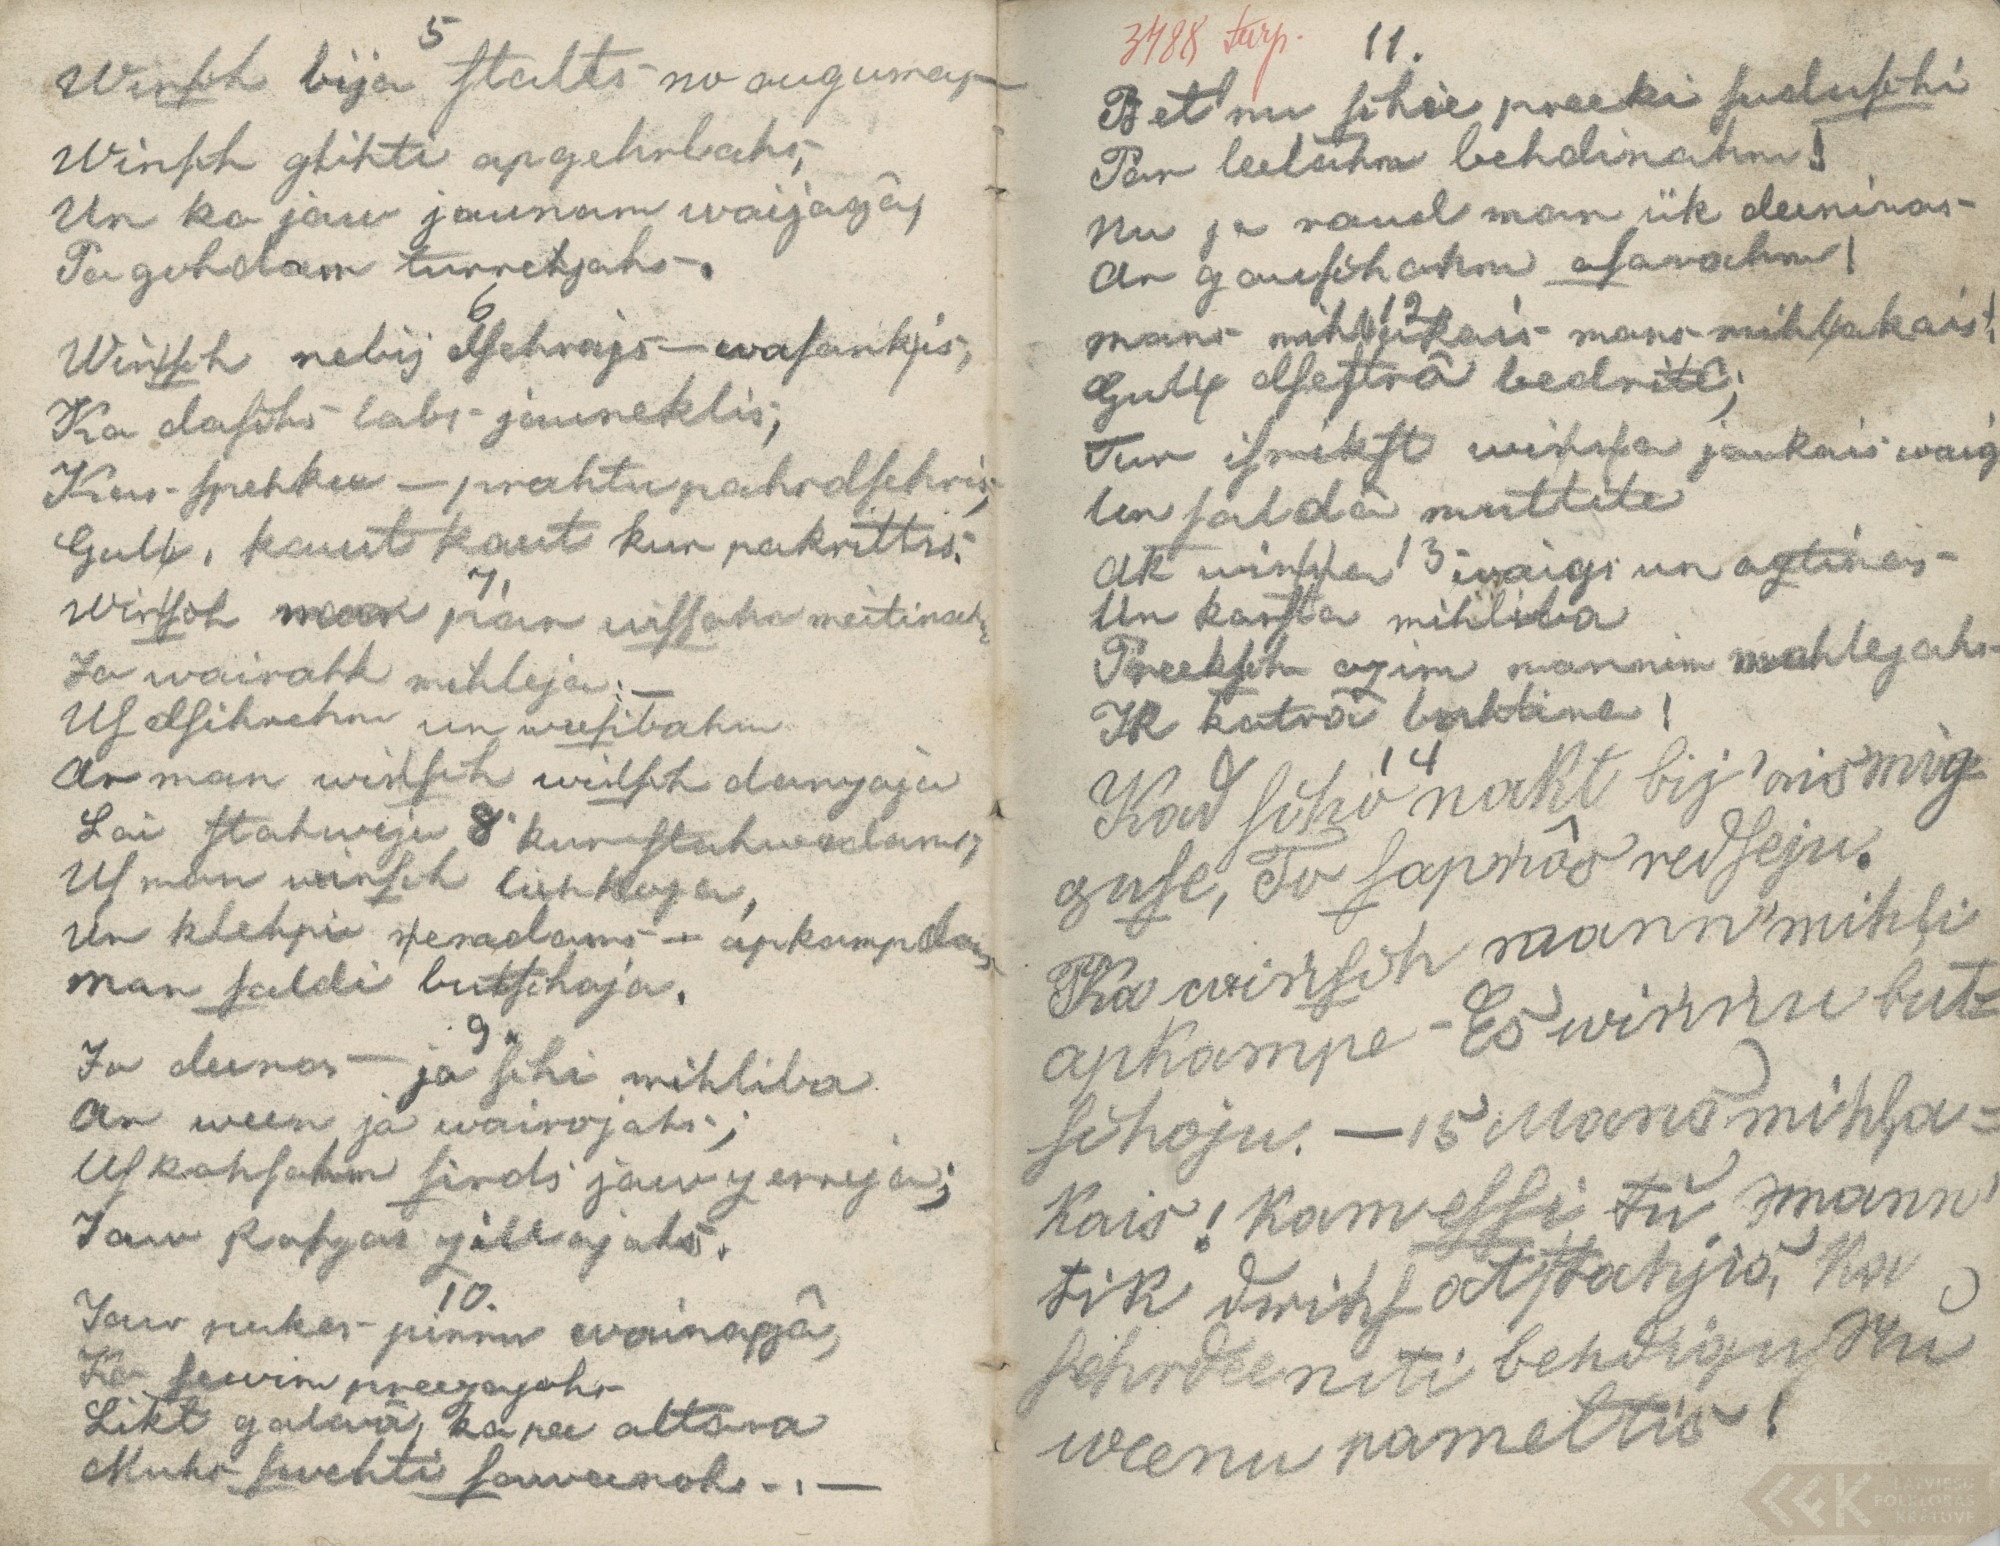 5
Winſch bija ſtalts no auguma,
Winſch glihti apgehrbahs,
Un ka jaw jaunam waijagâ,
Ta gohdam turrehjahs.
6
Winſch nebij dſehrajs – waſankis,
Ka daſchs labs jauneklis,
Kas ſpehku – prahtu pahrdſehris,
Guļļ, kaut kaut kur pakrittis.
7.
Winſch man par wiſſahm meitinahm
Jo wairahk mihleja; –
Uſ dſihrehm un weeſibahm
Ar man winſch winſch danzoja
8.
Lai ſtahweju kur ſtahwedams,
Uſ man winſch luhkoja,
Un klehpi ņemdams – apkampdams
Man ſaldi butſchoja.
9.
Jo deenas – jo ſchi mihliba
Ar ween jo wairojahs;
Uſ kahſahm ſirds jaw zerreja;
Jaw roſgas zillajahs.
10.
Jaw pukes pinnu wainagâ,
Ko ſewim preezajohs
Likt galwâ, ka pee altara
Muhs ſwehti ſaweenohs. –
3788 turp.
11.
Bet nu ſchee preeki ſuduſchi
Par leelahm behdinahm!
Nu ja raud man ik deeninas
Ar gauſchahm aſarahm!
12
Mans mihļakais mans mihļakais!
Guļļ dſeſtrâ bedrite;
Tur iſnikſt winna jaukais waig
Un ſaldâ muttite
13
Ak winna waigs un aztinas
Un karſta mihliba
Preekſch azim mannim mahlejahs
Ik katrâ brihtina!
14
Kad ſcho nakt bij' aismig
guſe, To ſapnôs redſeju.
Ka winſch mann' mihli
apkampe – Es winnu but=
ſchoju. – 15 Mans mihļa=
kais! kam eſſi tu mann'
tik drihſ atſtahjis, Ka
ſehrdeeniti behdigu Nu
weenu pamettis!
LATVIEŠU
FOLKLORAS
KRĀTUVE